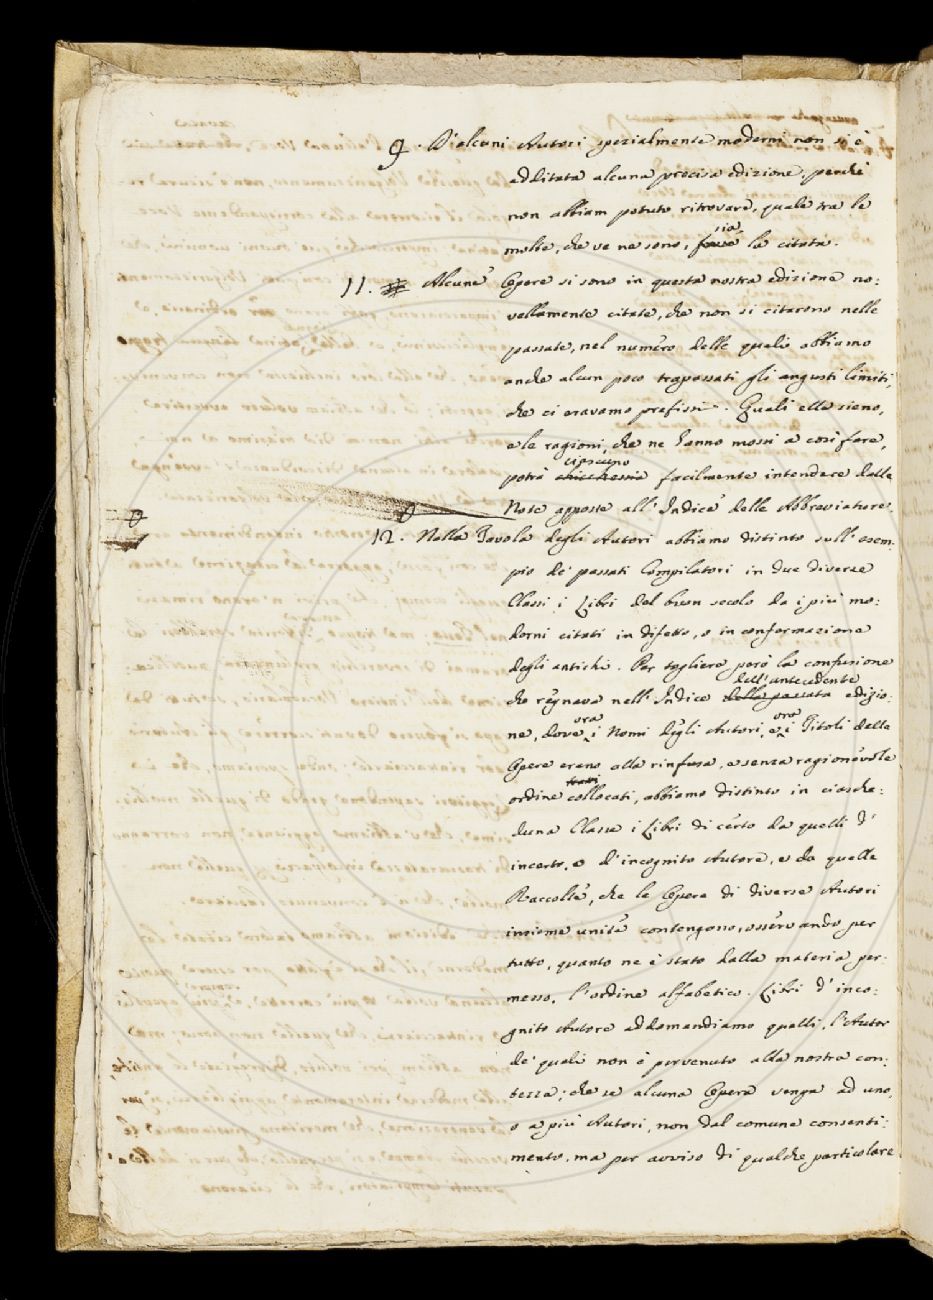 9. D'alcuni Autori spezialmente moderni non si è
additata alcuna precisa edizione, perchè
non abbiam potuto ritrovare, quale tra le
sia
molte, che ve ne sono, fosse la citata.
11. Alcune Opere si sono in questa nostra edizione no:
vellamente citate, che non si citarono nelle
passate, nel numero delle quali abbiamo
anche alcun poco trapassati gli angusti limiti,
che ci eravamo prefissi. Quali elle sieno,
e le ragioni, che ne hanno mossi a così fare,
ciascuno
potrà chicchessia facilmente intendere dalle
Note apposte all'Indice delle Abbreviature.
12. Nella Tavola degli Autori abbiamo distinto sull'esem:
pio de' passati Compilatori in due diverse
Classi i Libri del buon secolo da i più mo:
derni citati in difetto, o in confermazione
degli antichi. Per togliere però la confusione
dell'antecedente
che regnava nell'Indice della passata edizio:
ora ora
ne, dove i Nomi degli Autori, e i Titoli delle
Opere erano alla rinfusa, e senza ragionevole
ordine collocati, abbiamo distinto in ciasche:
duna Classe i Libri di certo da quelli d'
incerto, o d'incognito Autore, e da quelle
Raccolte, che le Opere di diverse Autori
insieme unite contengono, osservando per
tutto, quanto ne è stato dalla materia per:
messo, l'ordine alfabetico. Libri d'inco:
gnito Autore addomandiamo quelli, l'Autor
de' quali non è pervenuto alla nostra con:
tezza; che se alcuna Opera venga ad uno,
o a più Autori, non dal comune consenti:
mento, ma per avviso di qualche particolare